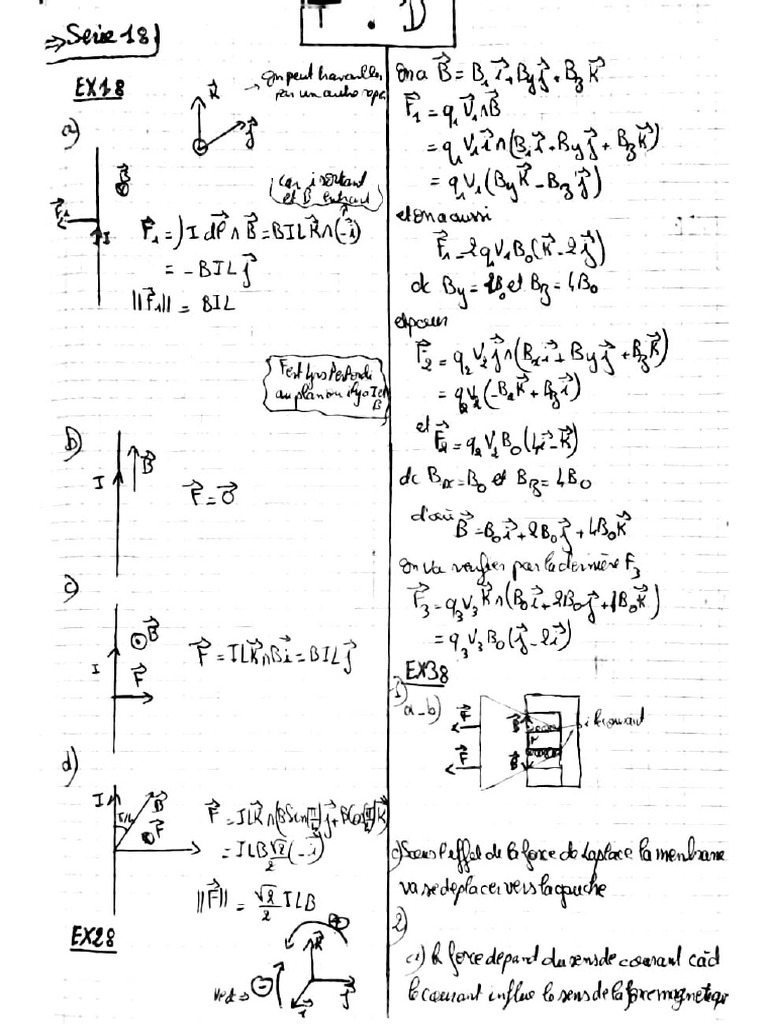 T.D
⇒ Serie 18
EX18
→ on peut travailler
par un autre repère
K⃗
j⃗
a)
B⃗
F⃗₁
I
(car i sortant
et B entrant)
F⃗₁ = ∫ I dl⃗ ∧ B⃗ = BILK⃗ ∧ (-i⃗)
= -BILj⃗
||F⃗₁|| = BIL
F est tjrs
au plan où il y a I et
B
b)
I
B⃗
F⃗ = O⃗
c)
B⃗
I
F⃗
F⃗ = ILK⃗ ∧ Bi⃗ = BILj⃗
d)
I
π/4
B⃗
F⃗
F⃗ = ILK⃗ ∧ (B Sin|π/4| j⃗ + B Cos|π/4| K⃗)
= ILB √2/2 (-i⃗)
||F⃗|| = √2/2 ILB
EX28
⊕
K⃗
⊖
i⃗
j⃗
On a B⃗ = B₁i⃗ + Byj⃗ + BzK⃗
F⃗₁ = q₁V⃗₁ ∧ B⃗
= q₁V₁i⃗ ∧ (B₁i⃗ + Byj⃗ + BzK⃗)
= q₁V₁(ByK⃗ - Bzj⃗)
et on a aussi
F⃗₁ = 2q₁V₁B₀(K⃗ - 2j⃗)
dc By = 2B₀ et Bz = 4B₀
et pour
F⃗₂ = q₂V₂j⃗ ∧ (Bxi⃗ + Byj⃗ + BzK⃗)
= q₂V₂(-BxK⃗ + Bzi⃗)
et
F⃗₂ = q₂V₂B₀(4i⃗ - K⃗)
dc Bx = B₀ et Bz = 4B₀
d'où
B⃗ = B₀i⃗ + 2B₀j⃗ + 4B₀K⃗
On va verifier par la dernière F₃
F⃗₃ = q₃V₃K⃗ ∧ (B₀i⃗ + 2B₀j⃗ + 4B₀K⃗)
= q₃V₃B₀(j⃗ - 2i⃗)
EX38
1)
a-b)
F⃗
F⃗
B⃗
B⃗
i le courant
c) Sous l'effet de la force de Laplace la membrane
va se deplacer vers la gauche
2)
a) la force depand du sens de courant càd
le courant influe le sens de la force magnetique